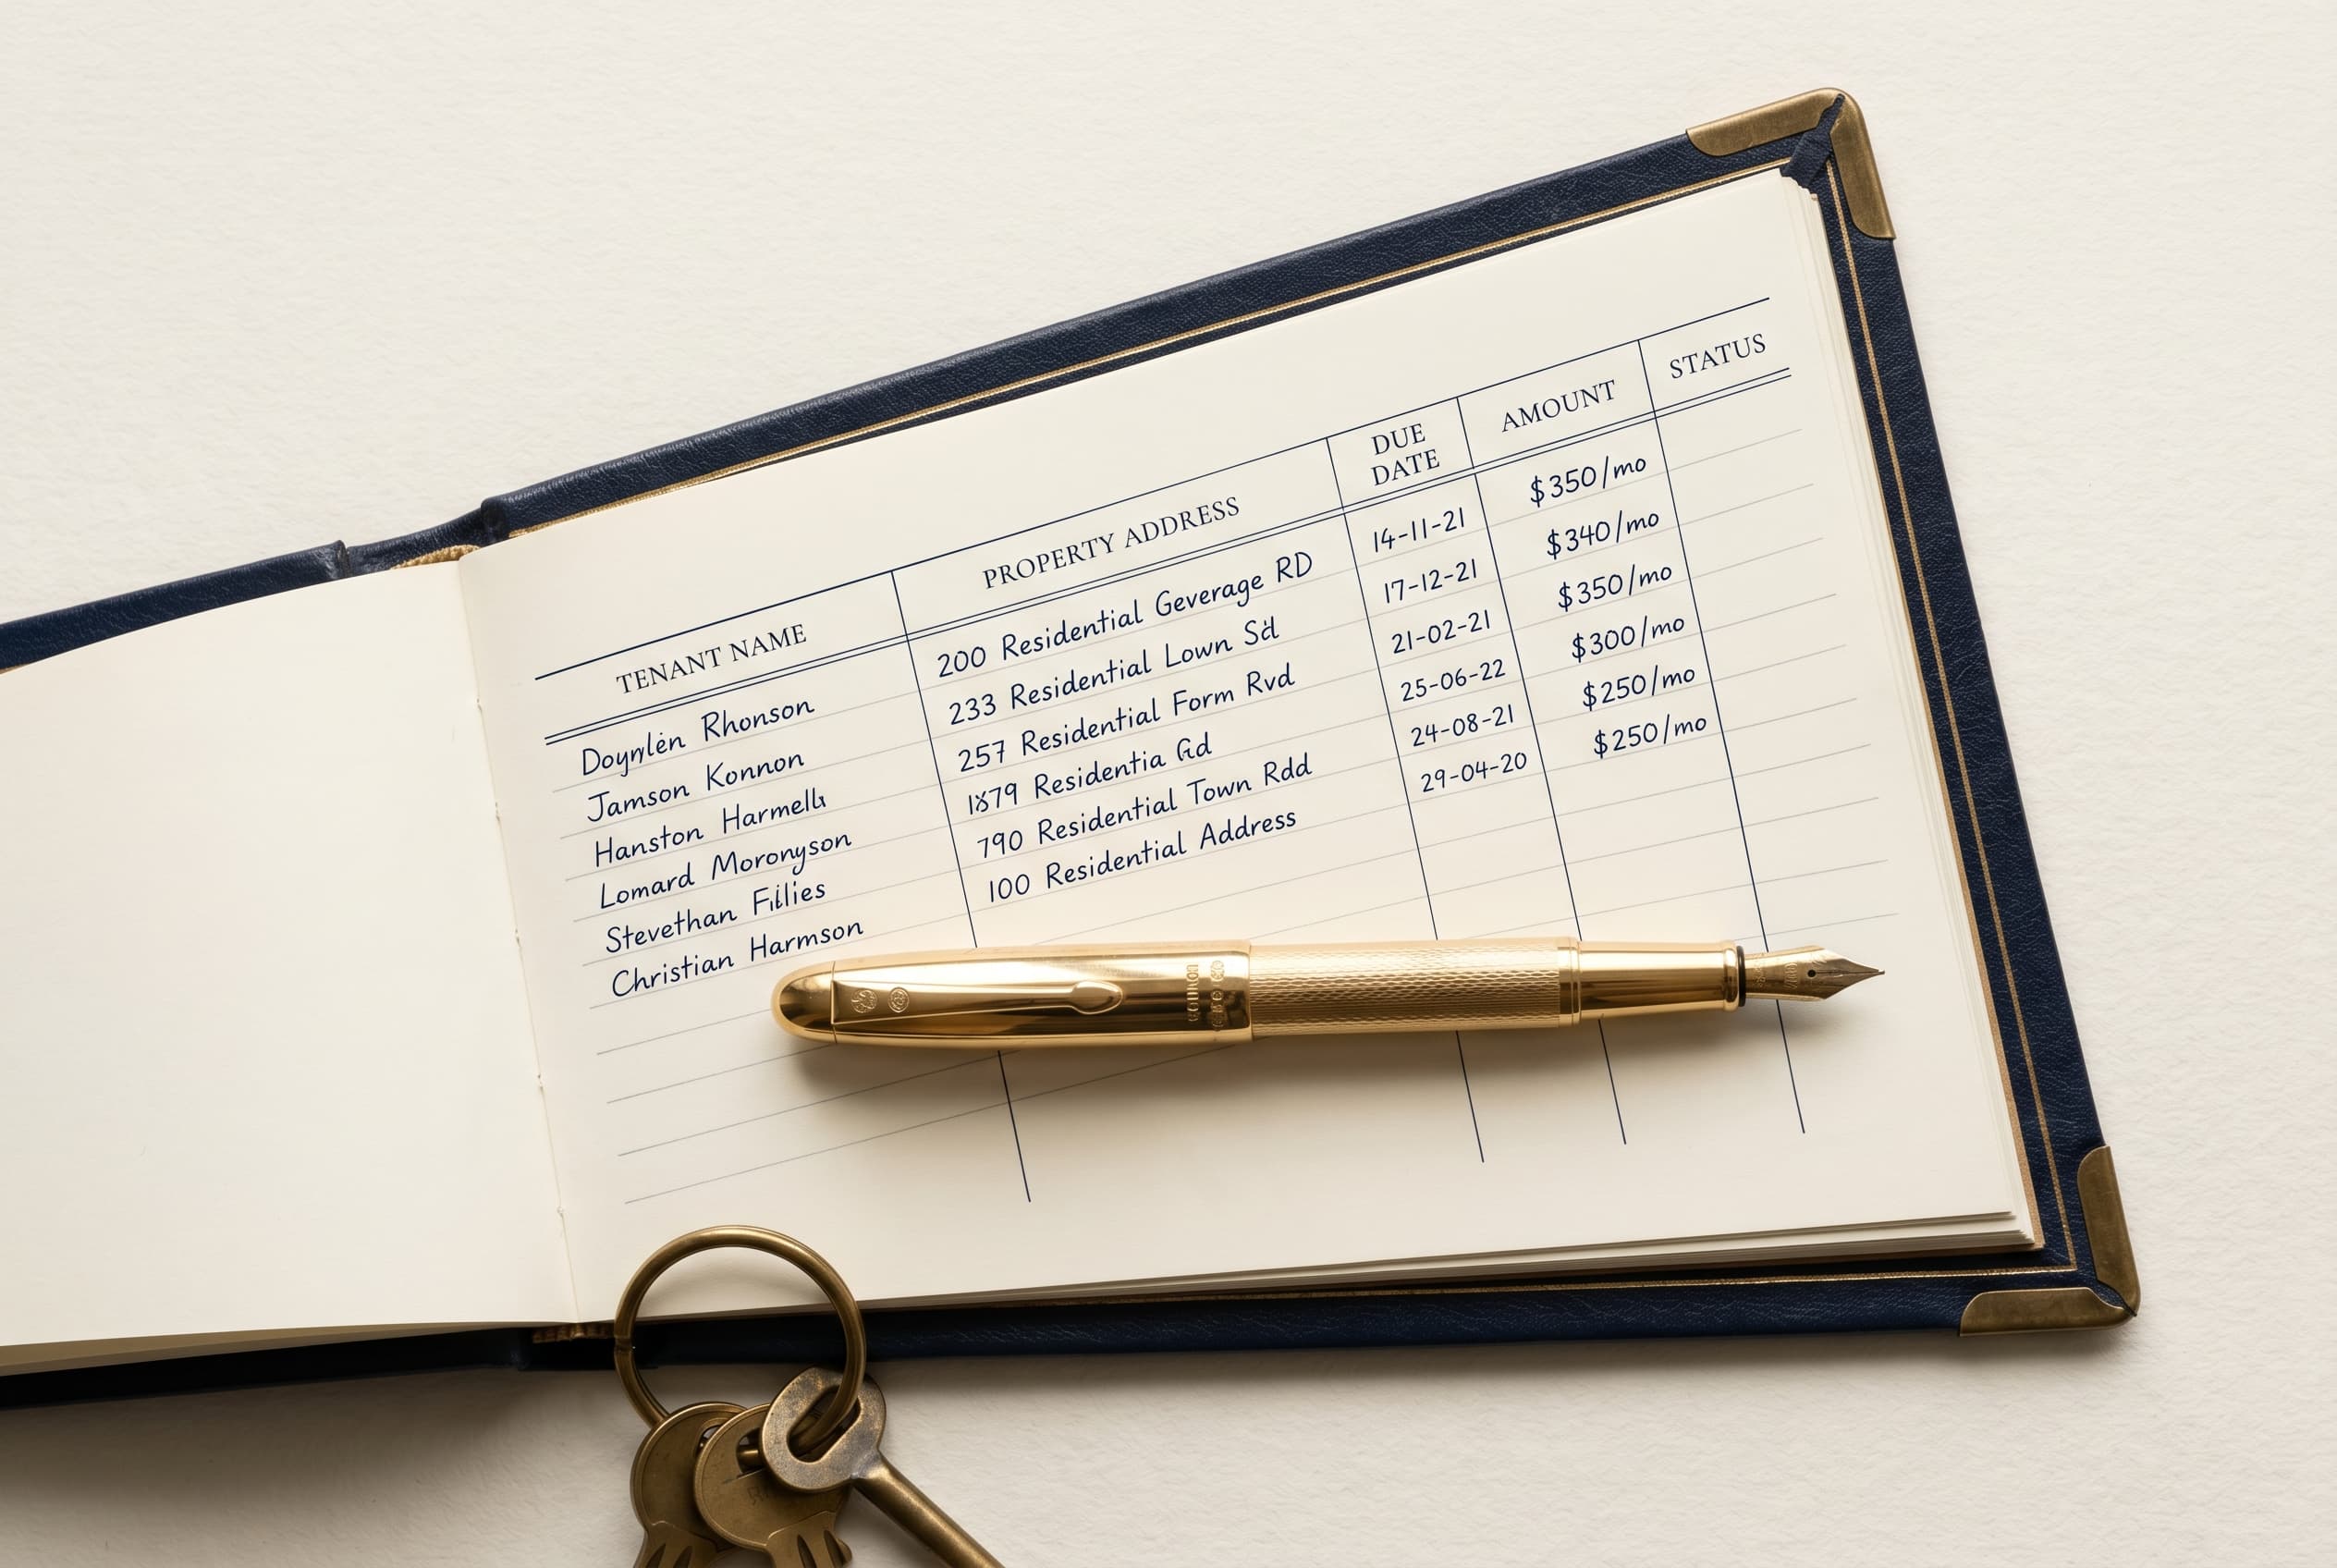 TENANT NAME PROPERTY ADDRESS DUE DATE AMOUNT STATUS
Rhonson 200 Residential Geverage RD 14-11-21 $350/mo
Jamson Konnon 233 Residential Lown 17-12-21 $340/mo
Hanston 257 Residential Form Rvd 21-02-21 $350/mo
Lomard Moronyson Residentia 25-06-22 $300/mo
Stevethan Fillies 790 Residential Town Rdd 24-08-21 $250/mo
Christian Harmson 100 Residential Address 29-04-20 $250/mo